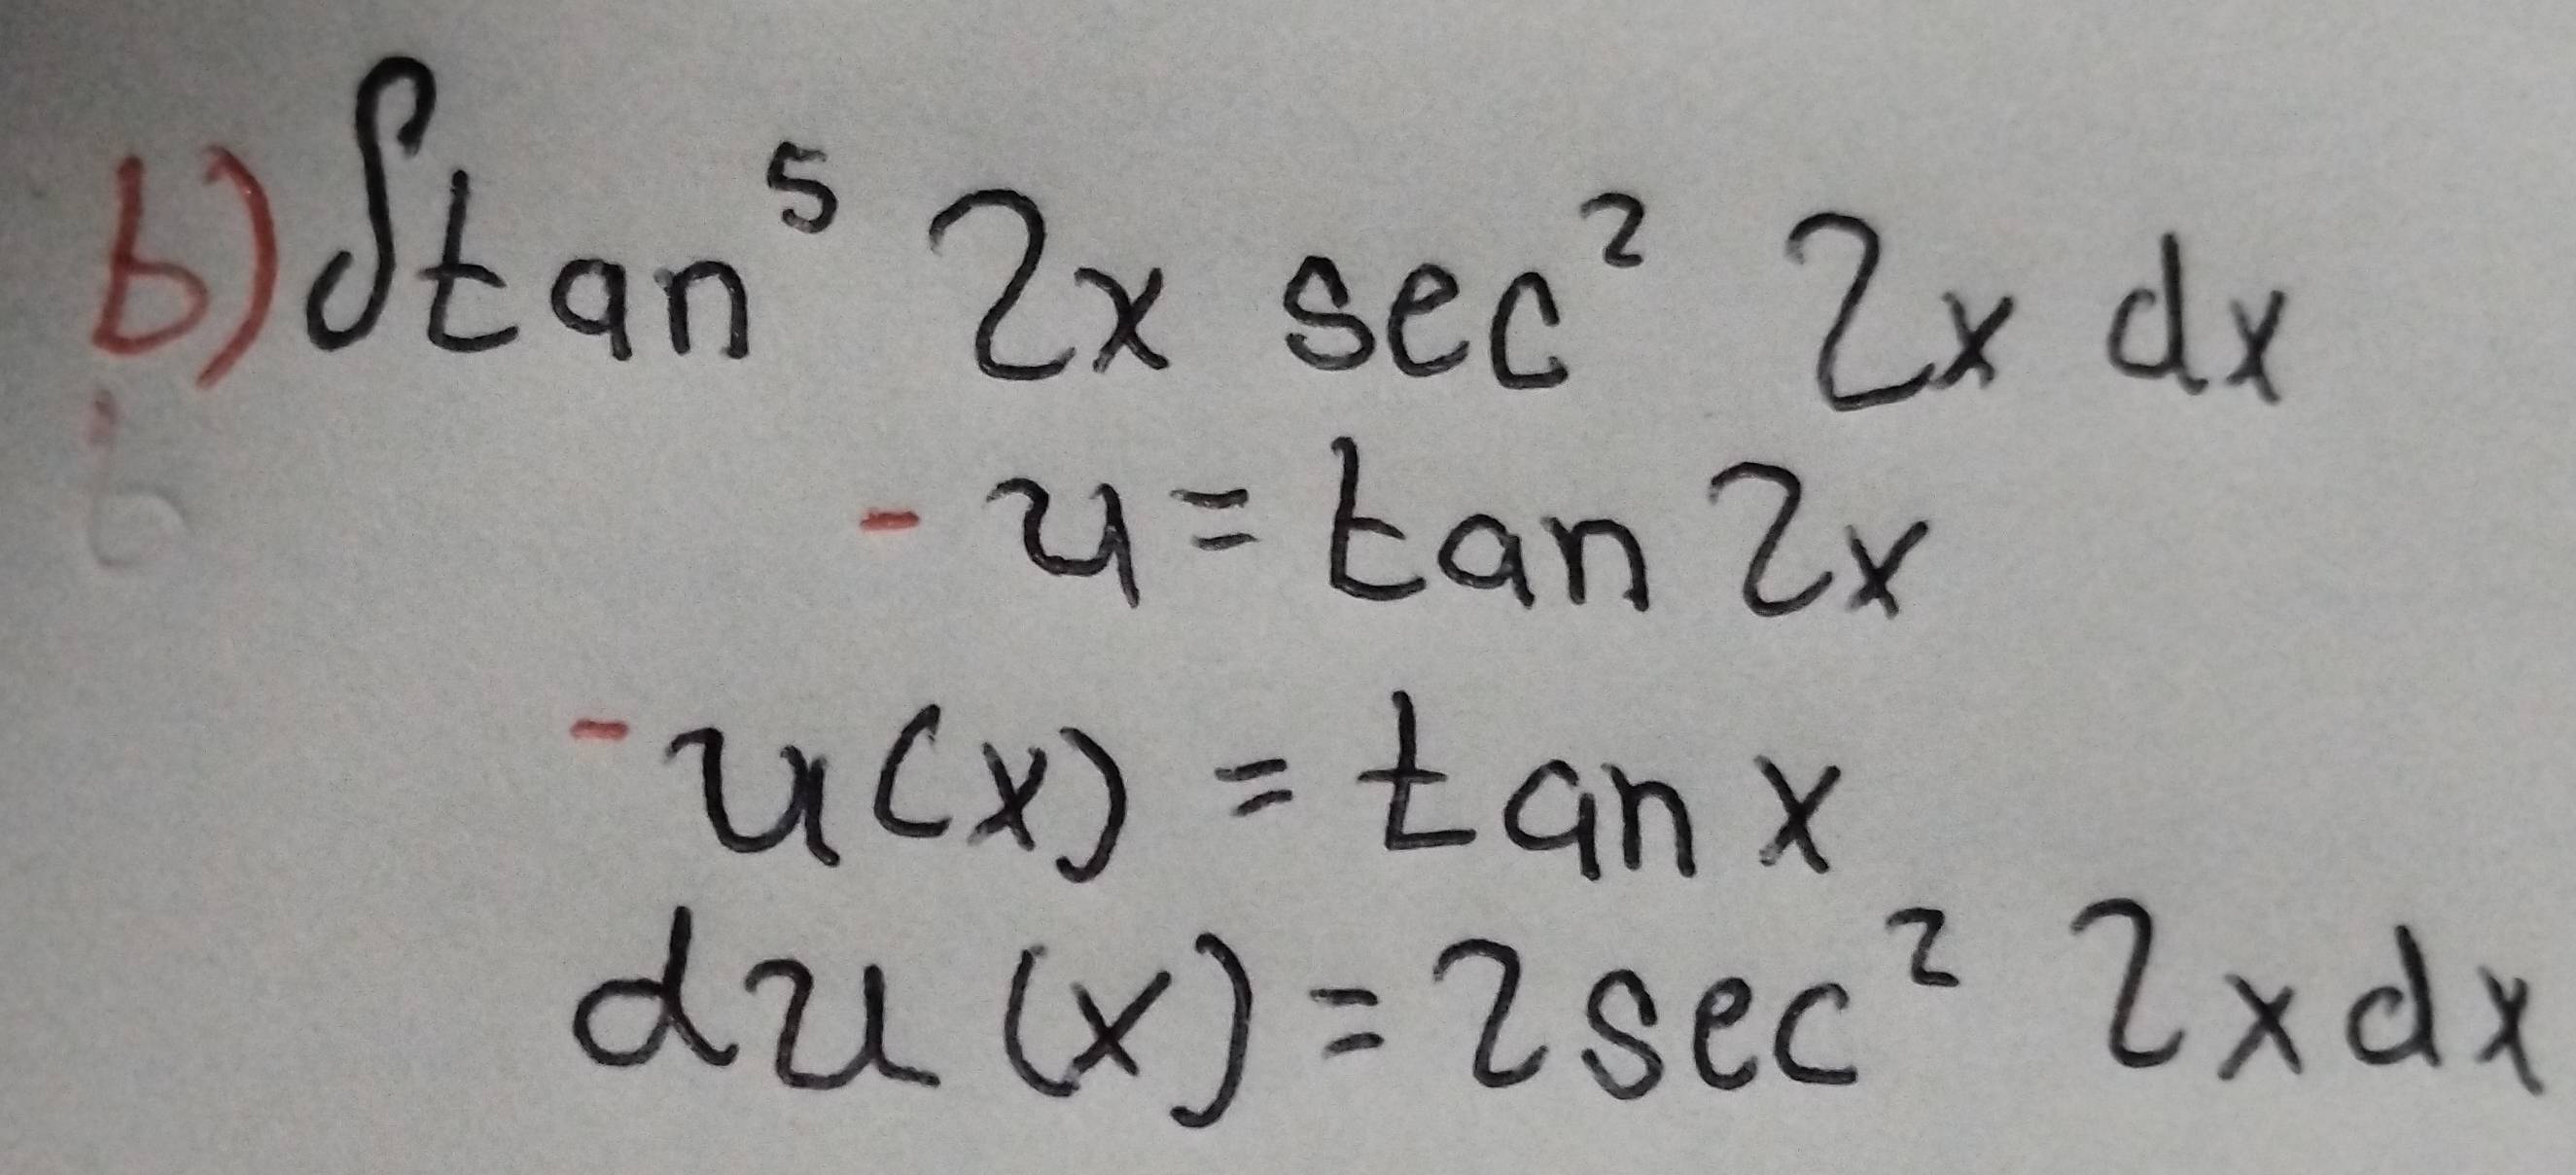 b) ∫tan⁵ 2x sec² 2x dx
- u = tan 2x
- u(x) = tan x
du(x) = 2sec² 2x dx